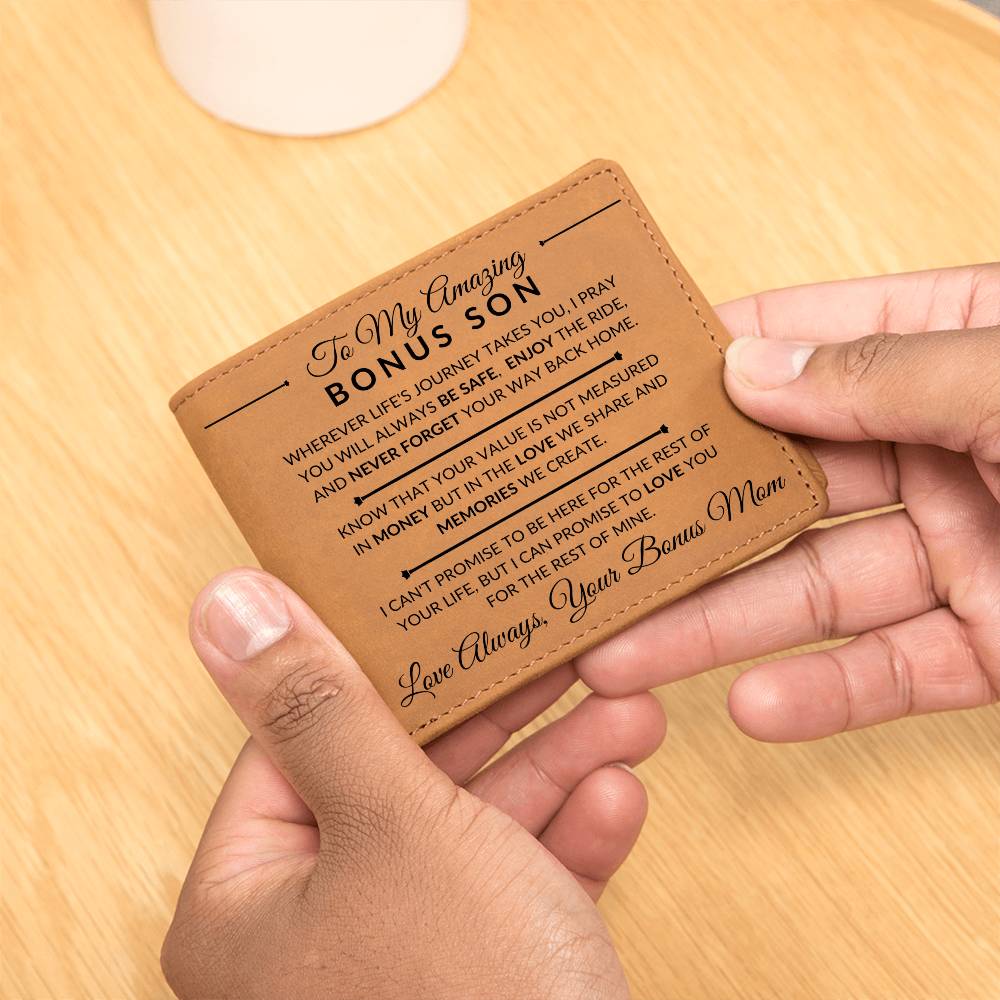 To My Amazing
BONUS SON
WHEREVER LIFE'S JOURNEY TAKES YOU, I PRAY
YOU WILL ALWAYS BE SAFE, ENJOY THE RIDE,
AND NEVER FORGET YOUR WAY BACK HOME.
KNOW THAT YOUR VALUE IS NOT MEASURED
IN MONEY BUT IN THE LOVE WE SHARE AND
MEMORIES WE CREATE.
I CAN'T PROMISE TO BE HERE FOR THE REST OF
YOUR LIFE, BUT I CAN PROMISE TO LOVE YOU
FOR THE REST OF MINE.
Love Always, Your Bonus Mom